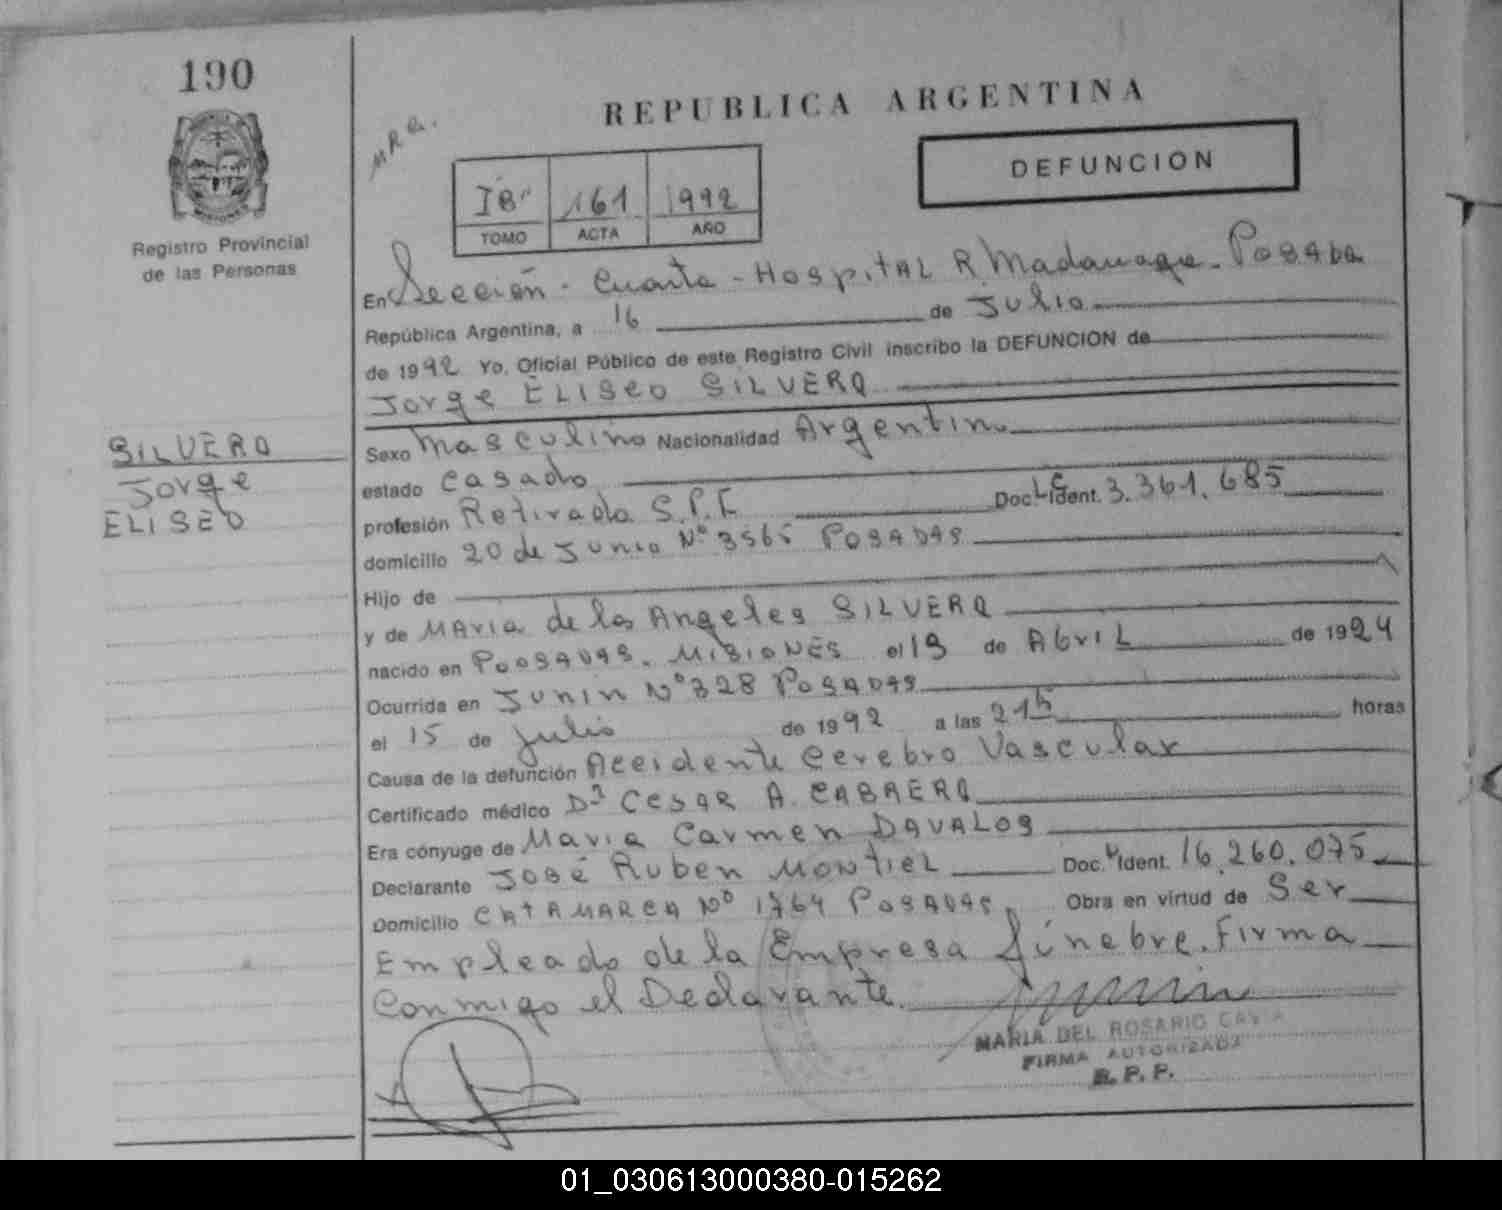 190
Registro Provincial
de las Personas
SILVERO
Jorge
ELISEO
MRR.
REPUBLICA ARGENTINA
DEFUNCION
161 1992
TOMO ACTA AÑO
En Sección - Cuarta - HospitAL R Madariaga - Posada
República Argentina, a 16 de Julio
de 1992 Yo, Oficial Público de este Registro Civil inscribo la DEFUNCION de
Jorge ELISEO SILVERO
Sexo Masculino Nacionalidad Argentino
estado Casado
profesión Retirado S.P.F Doc. Ident. 3.361.685
domicilio 20 de Junio Nº 3565 POSADAS
Hijo de
y de MARIA de los Angeles SILVERO
nacido en PoosADAS. MISIONES el 19 de AbriL de 1924
Ocurrida en JUNIN Nº 328 POSADAS
el 15 de Julio de 1992 a las 21h horas
Causa de la defunción Accidente Cerebro Vascular
Certificado médico Dr CESAR A. CABRERA
Era cónyuge de Maria Carmen DAVALOS
Declarante JOSÉ Ruben MONtiEL Doc. Ident. 16.260.075
Domicilio CAtAMARCA Nº 1764 POSADAS, Obra en virtud de Ser
Empleado de la Empresa fúnebre. Firma
Conmigo el Declarante.
MARIA DEL ROSARIO
FIRMA AUTORIZADA
R. P. P.
01_030613000380-015262